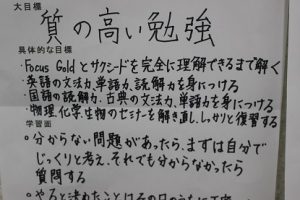 大目標
質の高い勉強
具体的な目標
・Focus Goldとサクシードを完全に理解できるまで解く
・英語の文法力、単語力、読解力を身につける
・国語の読解力、古典の文法力、単語力を身につける
・物理、化学、生物のセミナーを解き直し、しっかりと復習する
学習面
○分からない問題があったら、まずは自分で
じっくりと考え、それでも分からなかったら
質問する
○やると決めたことはその日のうちに